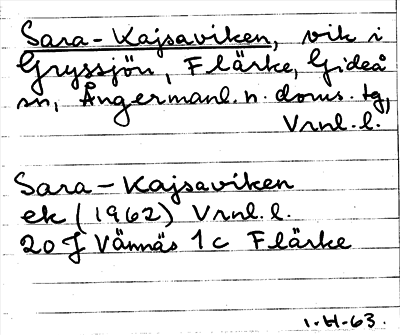 Sara-Kajsaviken, vik i
Gryssjön, Flärke, Gideå
sn, Ångermanl. n. doms. tg,
Vrnl. l.
Sara-Kajsaviken
ek (1962) Vrnl. l.
20 J Vännäs 1c Flärke
I.H-63.